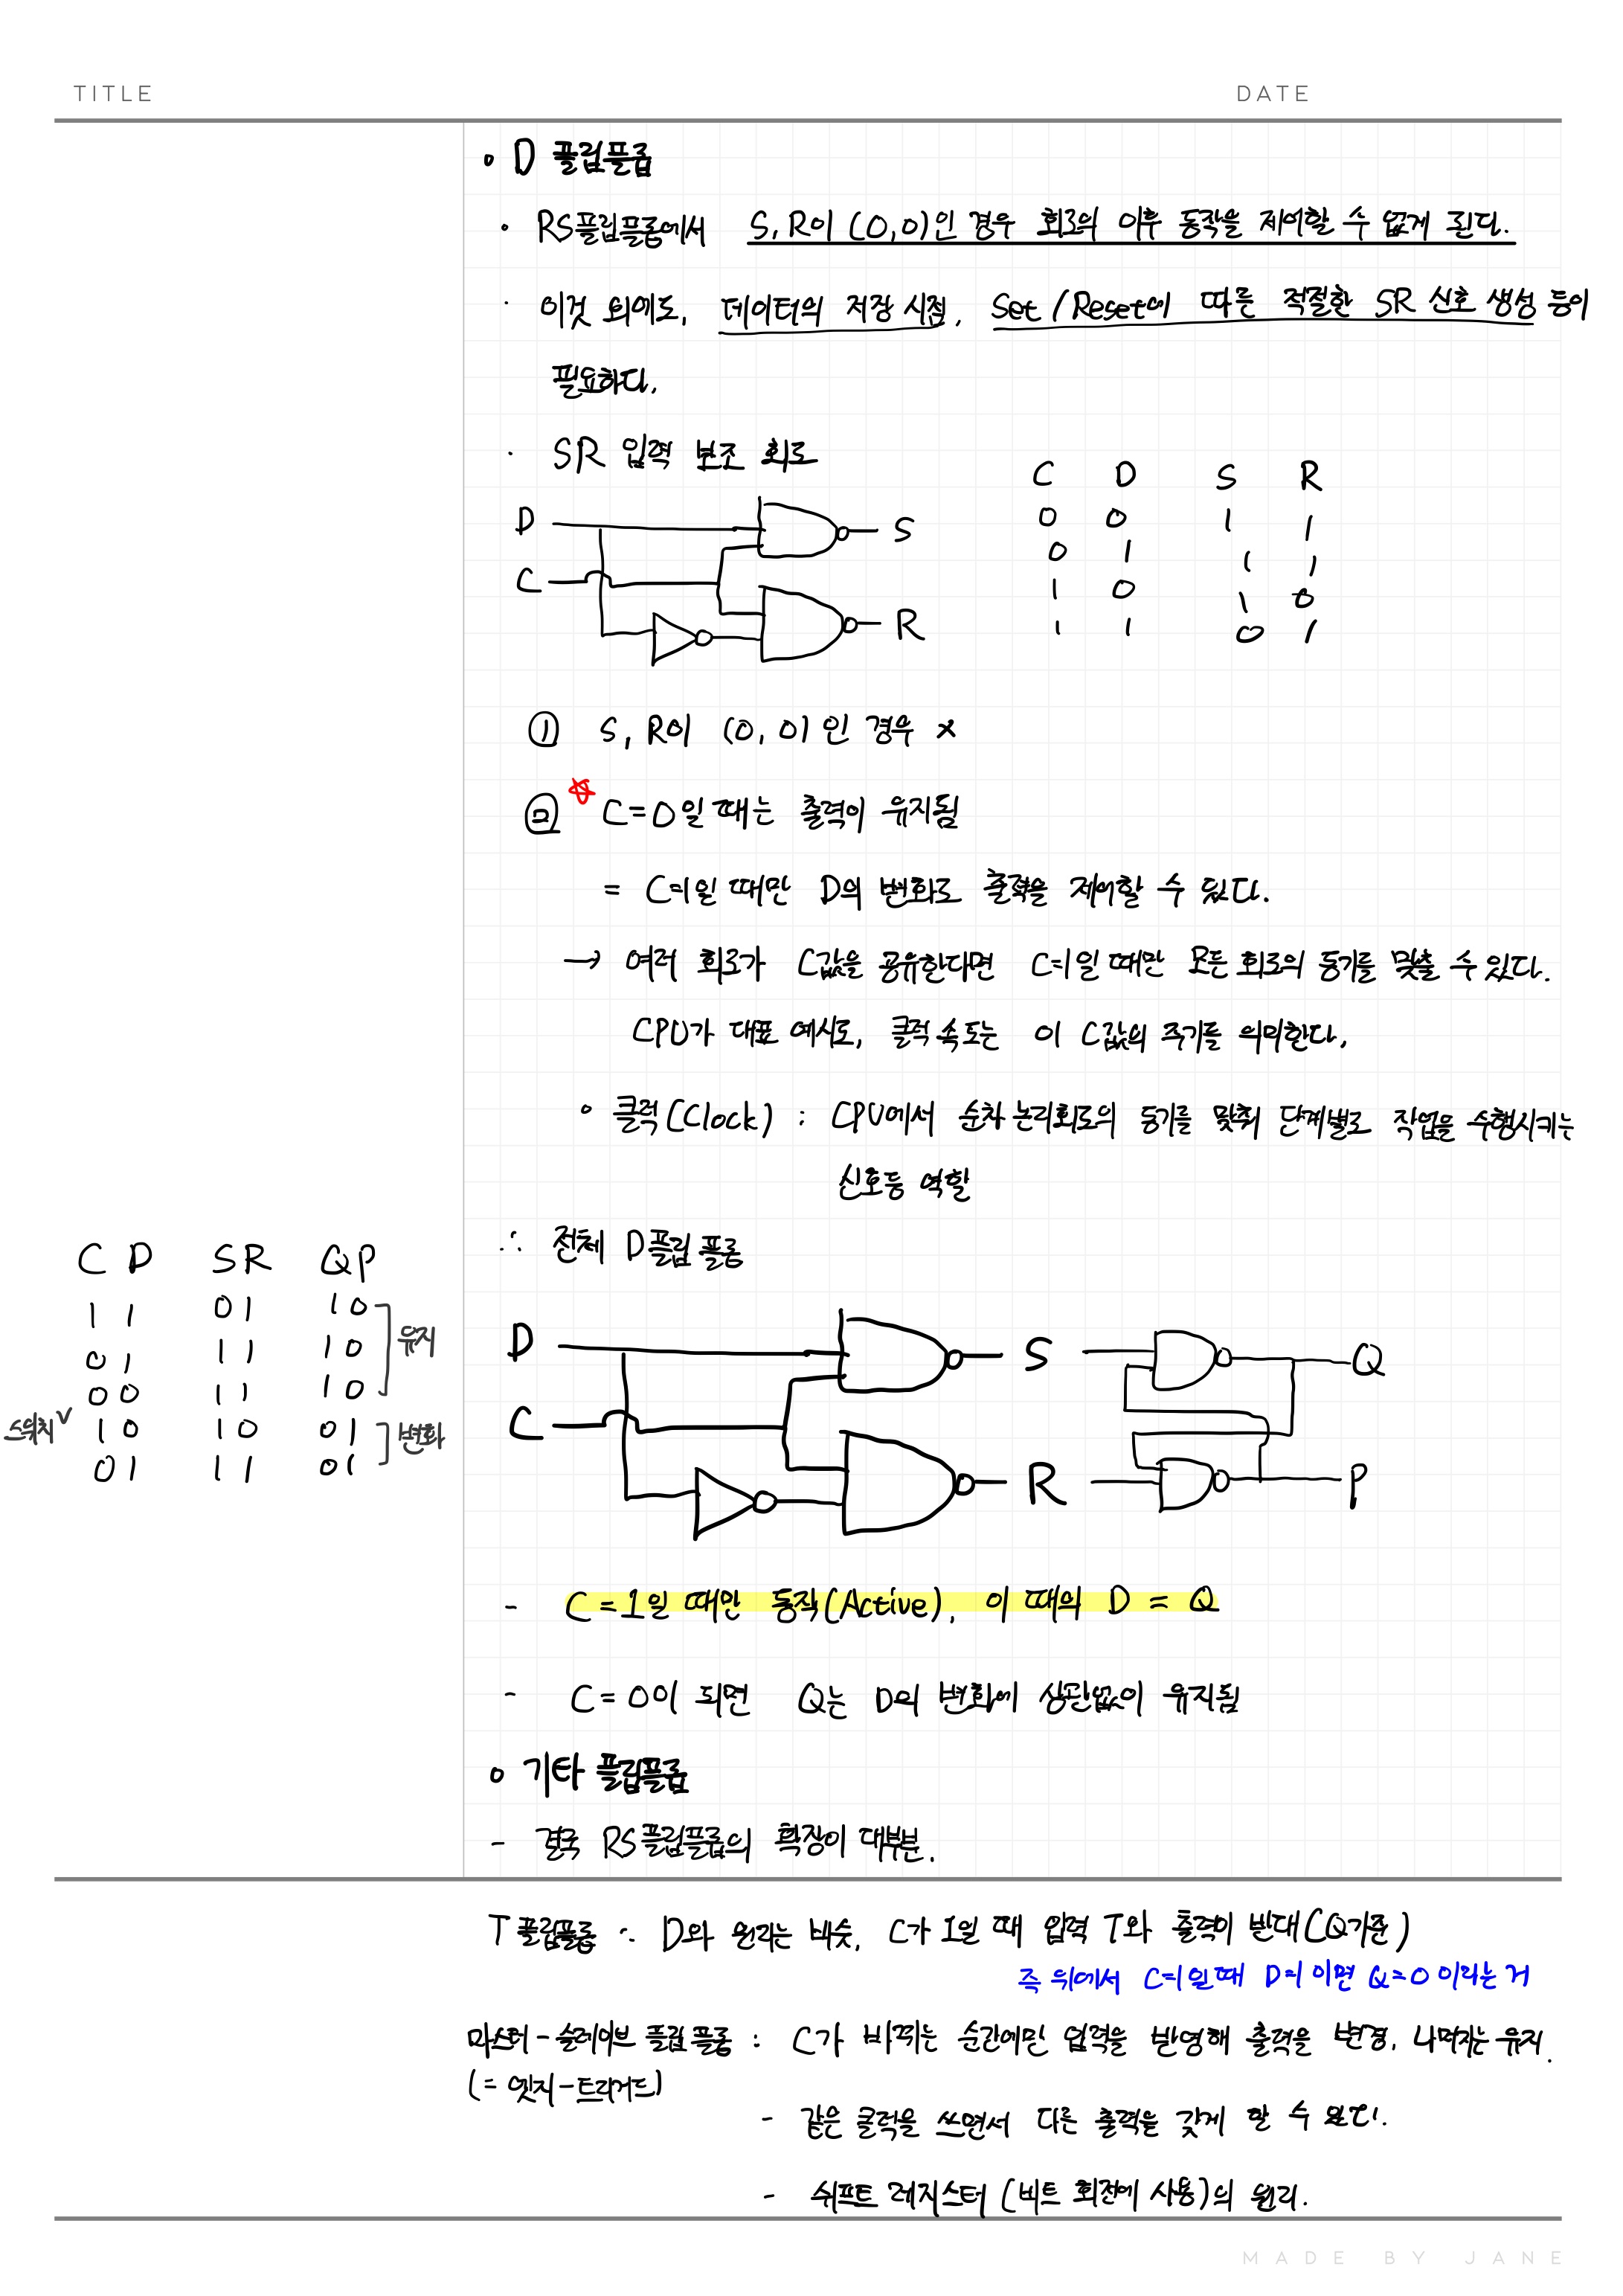 TITLE
DATE
D 플립플롭
RS플립플롭에서 S, R이 (0,0)인 경우 회로의 이후 동작을 제어할 수 없게 된다.
이것 외에도, 데이터의 저장 시점, Set/Reset에 따른 적절한 SR 신호 생성 등이
필요하다.
SR 입력 보조 회로
C D S R
0 0 1 1
0 1 1 1
1 0 1 0
1 1 0 1
D
S
C
R
① S, R이 (0, 0)인 경우 x
② C=0일 때는 출력이 유지됨
= C=1일 때만 D의 변화로 출력을 제어할 수 있다.
→ 여러 회로가 C값을 공유한다면 C=1일 때만 모든 회로의 동기를 맞출 수 있다.
CPU가 대표 예시로, 클럭 속도는 이 C값의 주기를 의미한다.
클럭(Clock) : CPU에서 순차 논리회로의 동기를 맞춰 단계별로 작업을 수행시키는
신호등 역할
∴ 전체 D플립플롭
C D S R Q P
1 1 0 1 1 0
0 1 1 1 1 0
유지
0 0 1 1 1 0
스위치 ✓ 1 0 1 0 0 1
변화
0 1 1 1 0 1
D
S
Q
C
R
P
- C = 1일 때만 동작(Active), 이 때의 D = Q
- C = 0이 되면 Q는 D의 변화에 상관없이 유지됨
기타 플립플롭
- 결국 RS플립플롭의 확장이 대부분.
T 플립플롭 : D와 원리는 비슷, C가 1일 때 입력 T와 출력이 반대(Q기준)
즉 위에서 C=1일 때 D=1이면 Q=0 이라는 거
마스터-슬레이브 플립플롭 : C가 바뀌는 순간에만 입력을 반영해 출력을 변경, 나머지는 유지.
(= 엣지-트리거드)
- 같은 클럭을 쓰면서 다른 출력을 갖게 할 수 있다.
- 쉬프트 레지스터 (비트 회전에 사용)의 원리.
MADE BY JANE